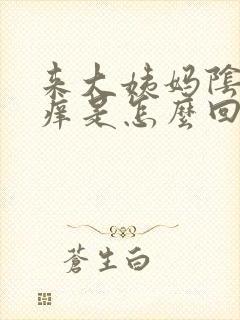 来大姨妈陰
痒是怎麼回
蒼生白